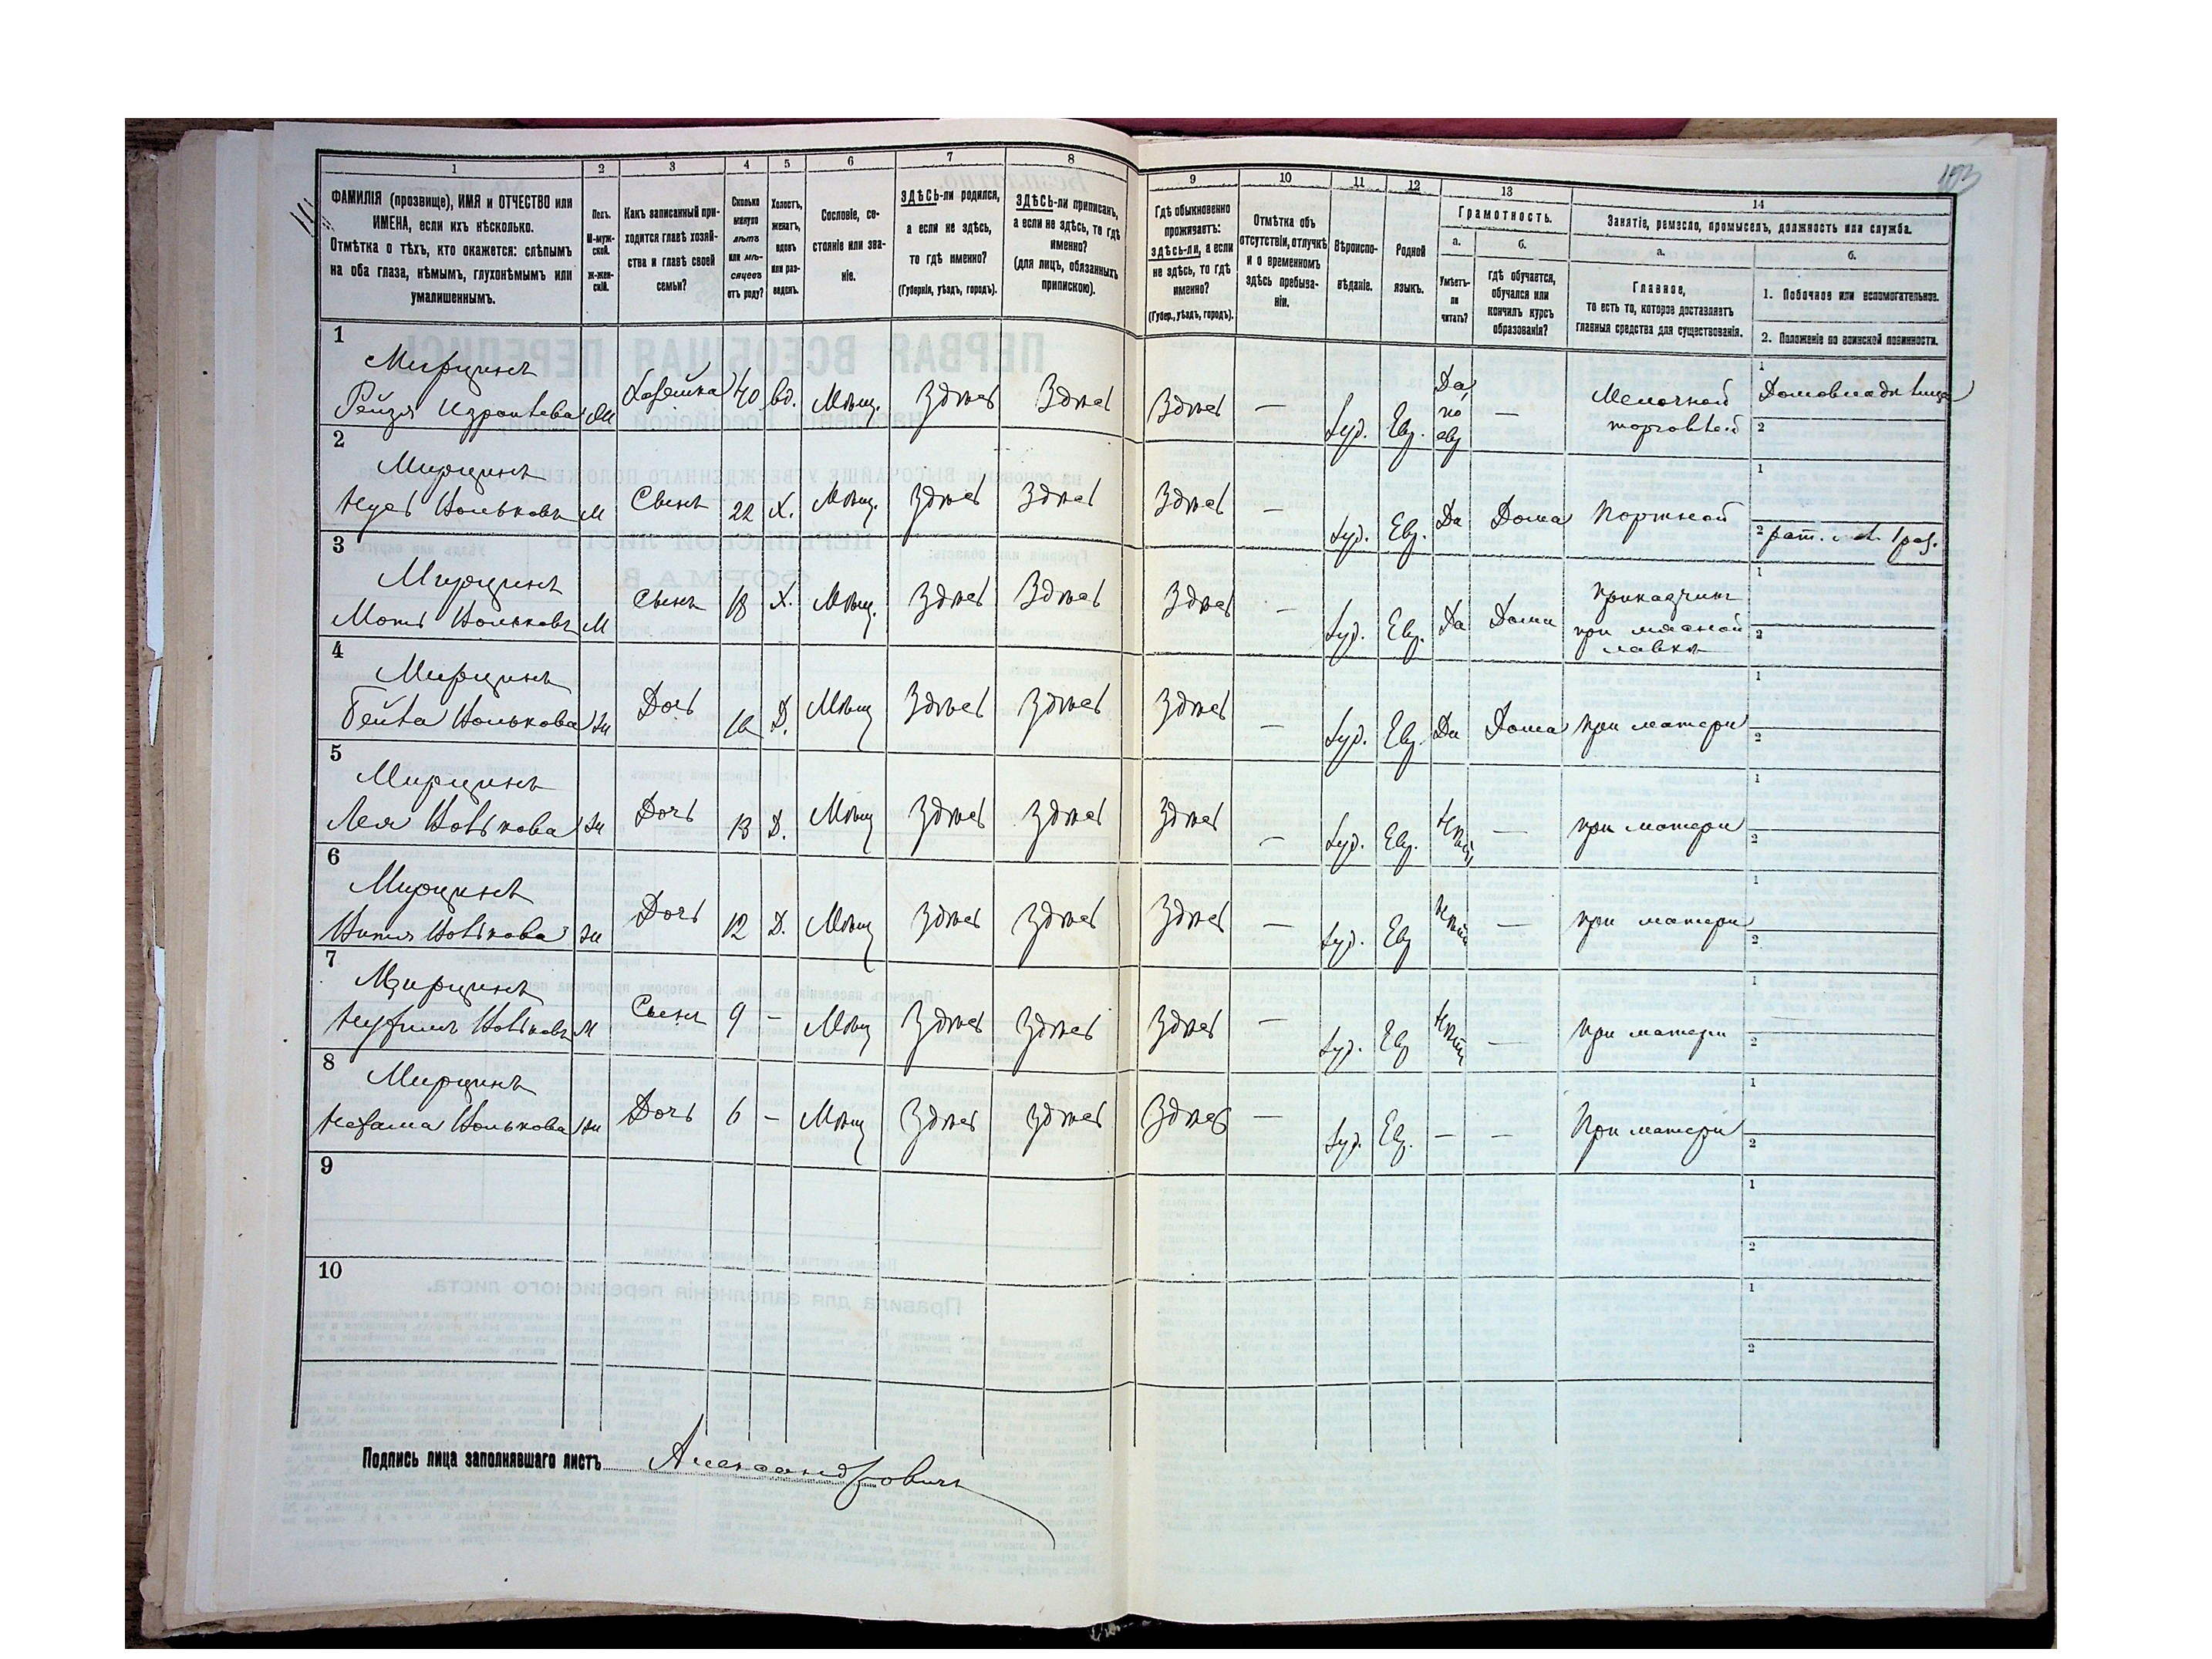 193
1 2 3 4 5 6 7 8 9 10 11 12 13 14
ФАМИЛІЯ (прозвище), ИМЯ и ОТЧЕСТВО или
ИМЕНА, если ихъ нѣсколько.
Отмѣтка о тѣхъ, кто окажется: слѣпымъ
на оба глаза, нѣмымъ, глухонѣмымъ или
умалишеннымъ.
Полъ.
М-муж-
ской.
Ж-жен-
скій.
Какъ записанный при-
ходится главѣ хозяй-
ства и главѣ своей
семьи?
Сколько
минуло
лѣтъ
или мѣ-
сяцевъ
отъ роду?
Холостъ,
женатъ,
вдовъ
или раз-
веденъ.
Сословіе, со-
стояніе или зва-
ніе.
ЗДѢСЬ-ли родился,
а если не здѣсь,
то гдѣ именно?
(Губернія, уѣздъ, городъ).
ЗДѢСЬ-ли приписанъ,
а если не здѣсь, то гдѣ
именно?
(для лицъ, обязанныхъ
припискою).
Гдѣ обыкновенно
проживаетъ:
здѣсь-ли, а если
не здѣсь, то гдѣ
именно?
(Губер., уѣздъ, городъ).
Отмѣтка объ
отсутствіи, отлучкѣ
и о временномъ
здѣсь пребыва-
ніи.
Вѣроиспо-
вѣданіе.
Родной
языкъ.
Грамотность.
а.
Умѣетъ-
ли
читать?
б.
гдѣ обучается,
обучался или
кончилъ курсъ
образованія?
Занятіе, ремесло, промыселъ, должность или служба.
а.
Главное,
то есть то, которое доставляетъ
главныя средства для существованія.
б.
1. Побочное или вспомогательное.
2. Положеніе по воинской повинности.
1
Мирцинъ
Рейзя Израилева М Хозяйка 40 вд. Мѣщ. Здѣсь Здѣсь Здѣсь — Іуд. Евр. Да, по евр — Мелочной торговлей
1 Домовладѣлица
2
2
Мирцинъ
Нусь Цольковъ М Сынъ 22 Х. Мѣщ. Здѣсь Здѣсь Здѣсь — Іуд. Евр. Да Дома Портной
1
2 рат. 1 раз.
3
Мирцинъ
Мота Цольковъ М Сынъ 18 Х. Мѣщ. Здѣсь Здѣсь Здѣсь — Іуд. Евр. Да Дома Приказчикъ при мясной лавкѣ
1
2
4
Мирцинъ
Бейла Цолькова Ж Дочь Д. Мѣщ Здѣсь Здѣсь Здѣсь — Іуд. Евр. Да Дома При матери
1
2
5
Мирцинъ
Лея Цолькова Ж Дочь 13 Д. Мѣщ Здѣсь Здѣсь Здѣсь — Іуд. Евр. Нѣтъ — При матери
1
2
6
Мирцинъ
Цолькова Ж Дочь 12 Д. Мѣщ Здѣсь Здѣсь Здѣсь — Іуд. Евр Нѣтъ — При матери
1
2
7
Мирцинъ
Цольковъ М Сынъ 9 — Мѣщ Здѣсь Здѣсь Здѣсь — Іуд. Евр Нѣтъ — При матери
1
2
8
Мирцинъ
Нехама Цолькова Ж Дочь 6 — Мѣщ Здѣсь Здѣсь Здѣсь — Іуд. Евр. — — При матери
1
2
9
1
2
10
1
2
Подпись лица заполнявшаго листъ Александровичъ